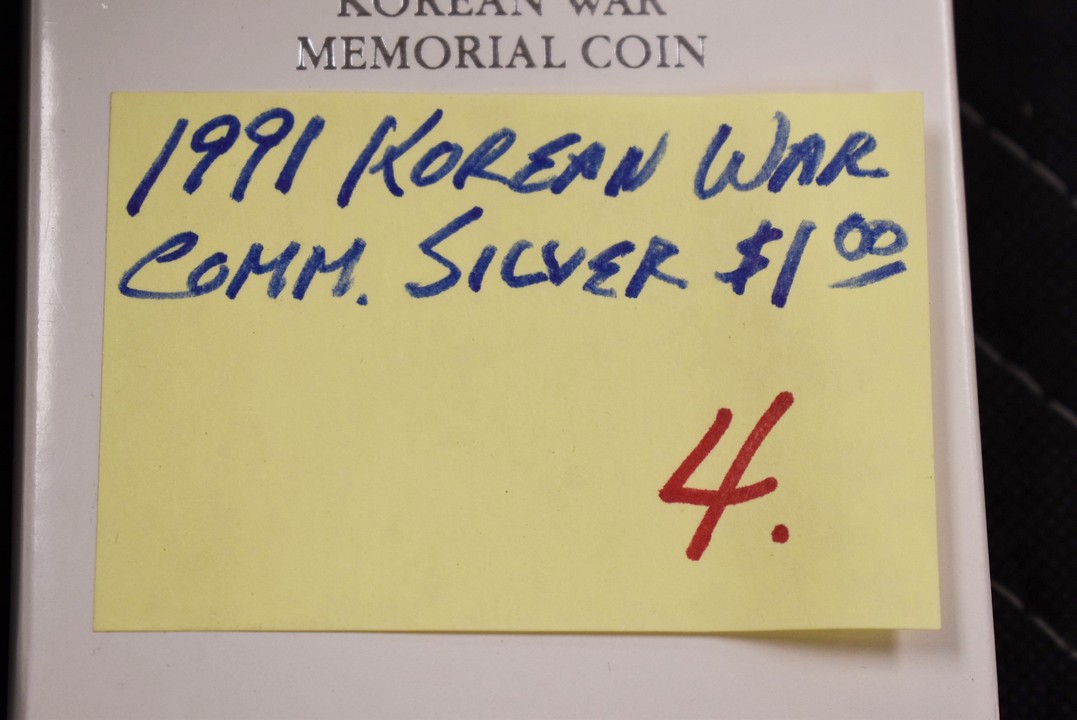 KOREAN WAR
MEMORIAL COIN
1991 KOREAN WAR
COMM. SILVER $1 00
4.